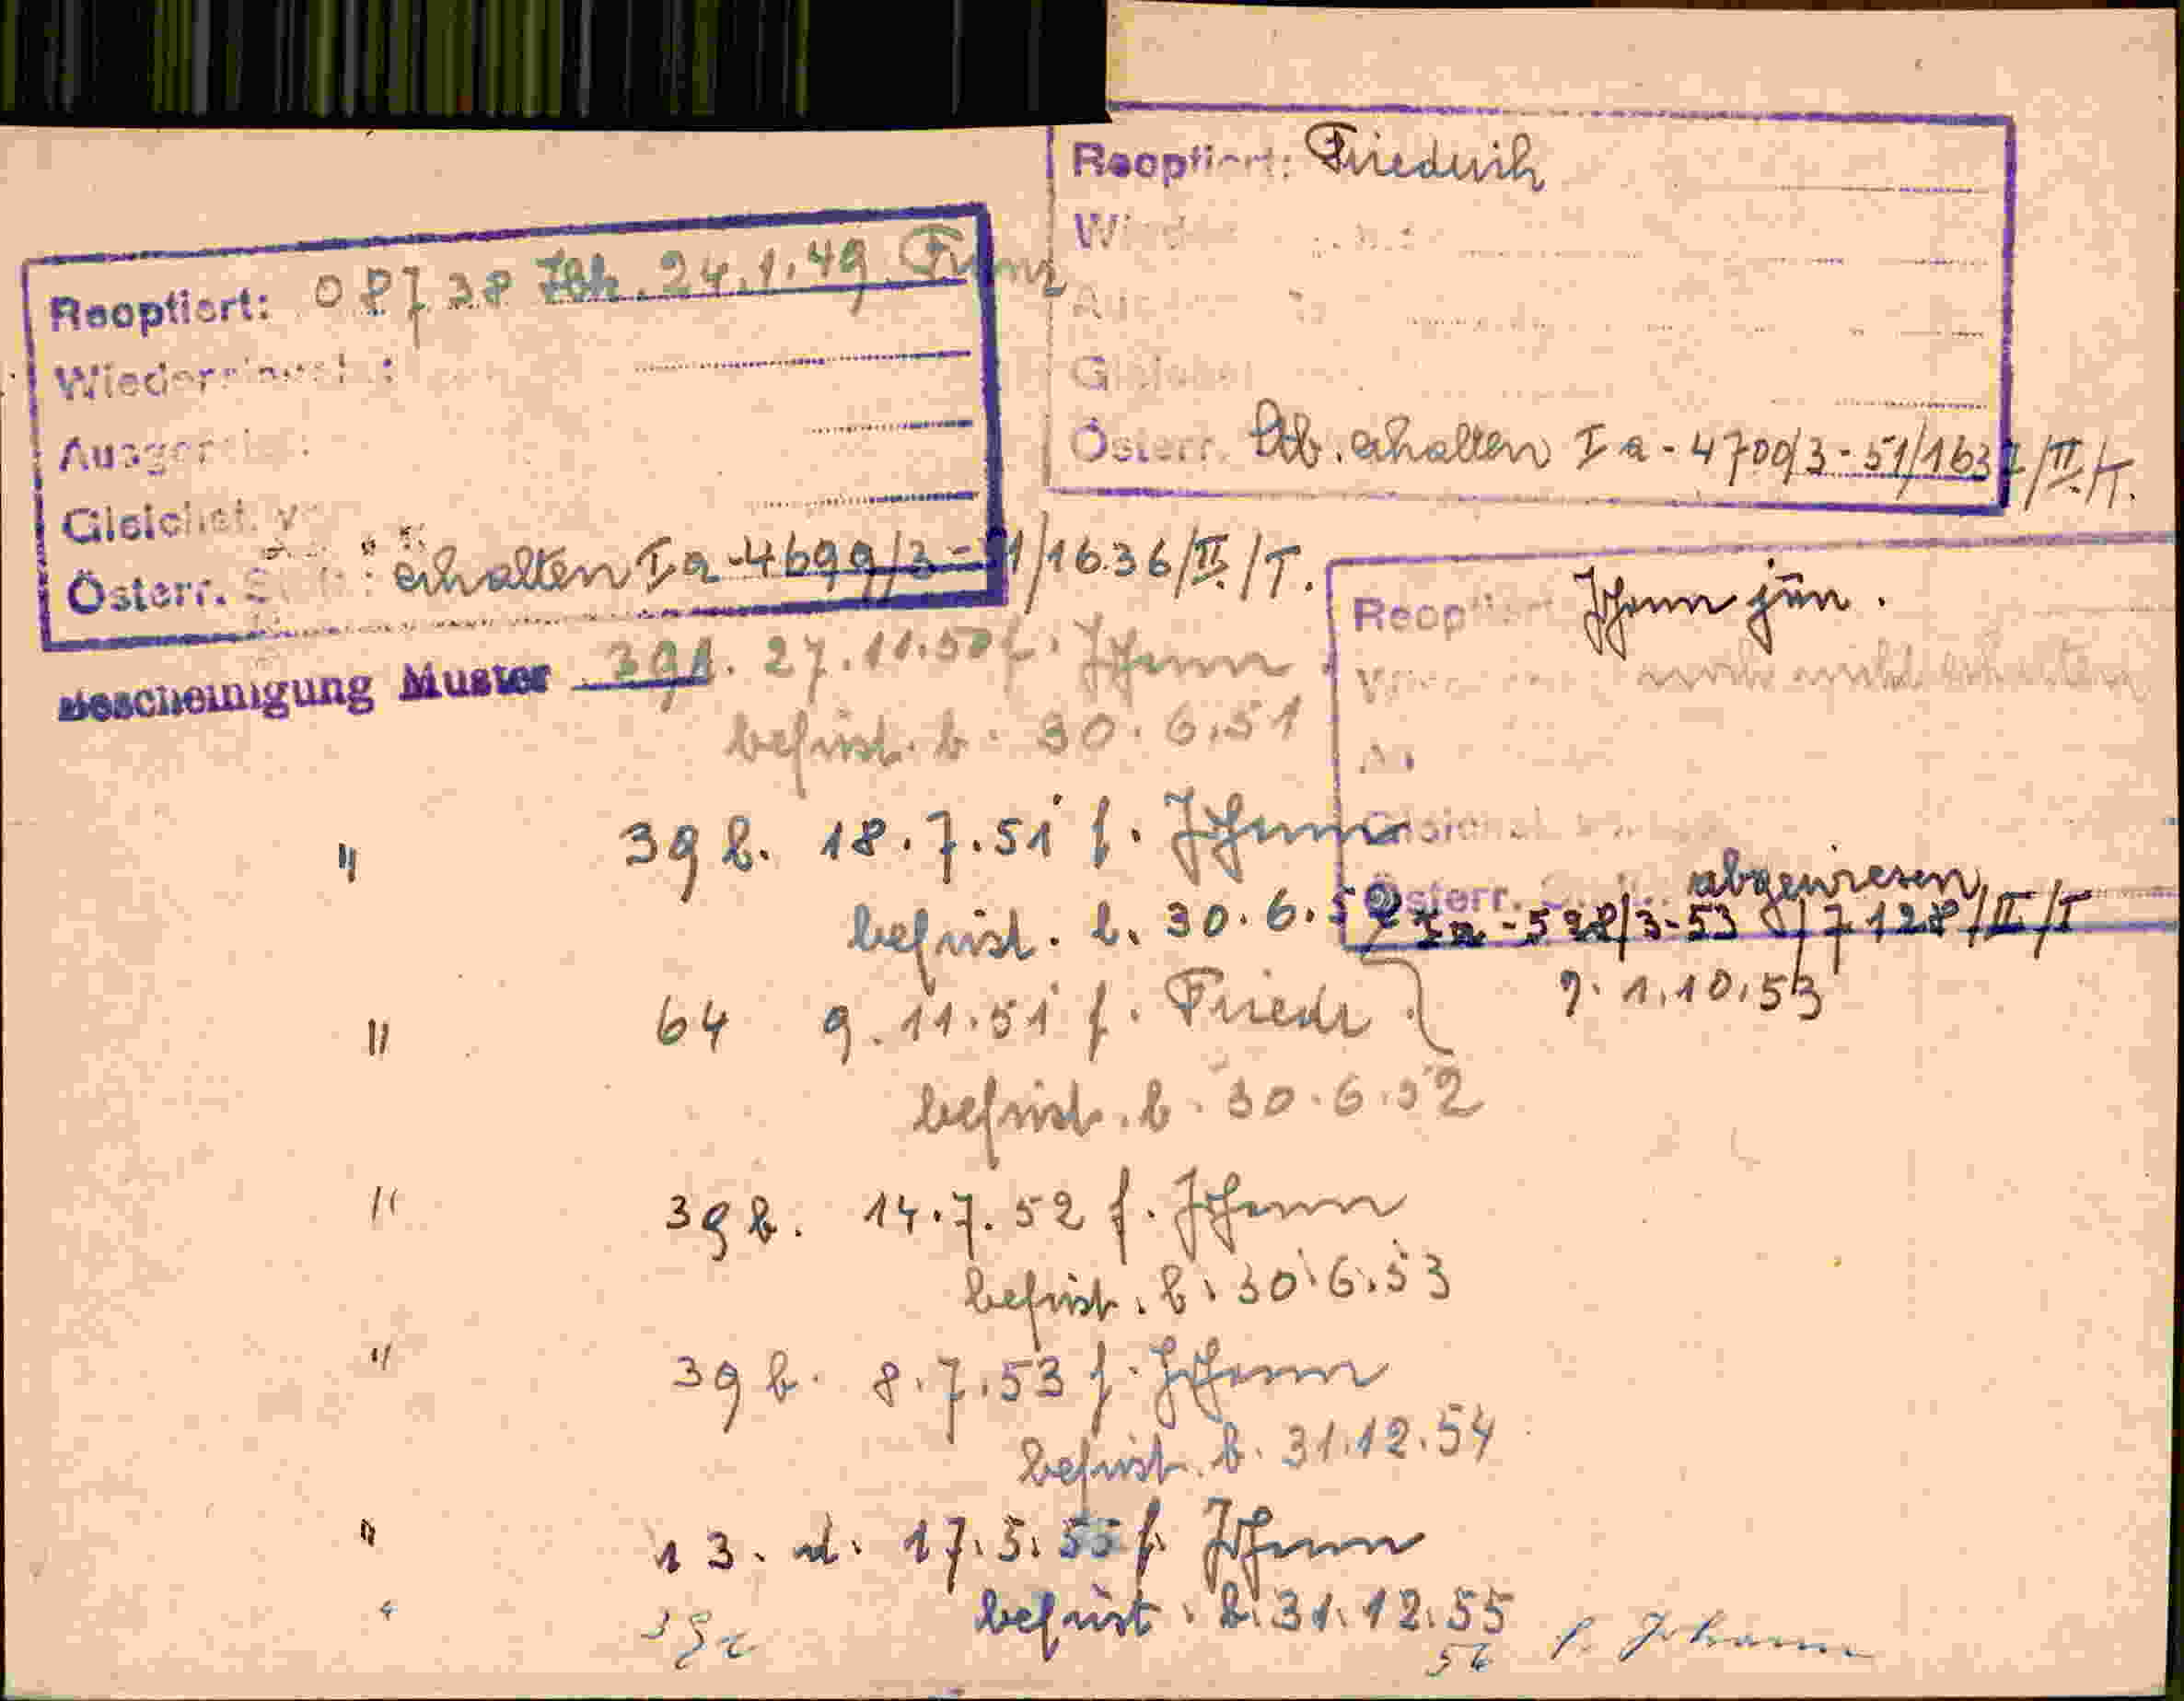 Reoptiert: Friedrich
Österr. Stb. erhalten I a - 4700/3 - 51/1637/II./T.
Reoptiert: 08738 24.1.49 Franz
Ausger
Gleichst. v
Österr. erhalten I a - 4699/3 = 51/1636/II./T.
Reoptiert Johann jun.
noch nicht erhalten
abgewiesen
Österr. I a - 528/3-53 / 7128/II/T
1.10.53
Bescheinigung Muster 39b. 27.11.50 f. Johann
befrist. b. 30.6.51
" 39b. 18.7.51 f. Johann
befrist. b. 30.6.52
" 64 9.11.51 f. Friedr
befrist. b. 30.6.52
" 39b. 14.7.52 f. Johann
befrist. b. 30.6.53
" 39b. 8.7.53 f. Johann
befrist. b. 31.12.54
" 13. d. 17.5.55 f. Johann
befrist. b. 31.12.55
" 39c 56 f. Johann